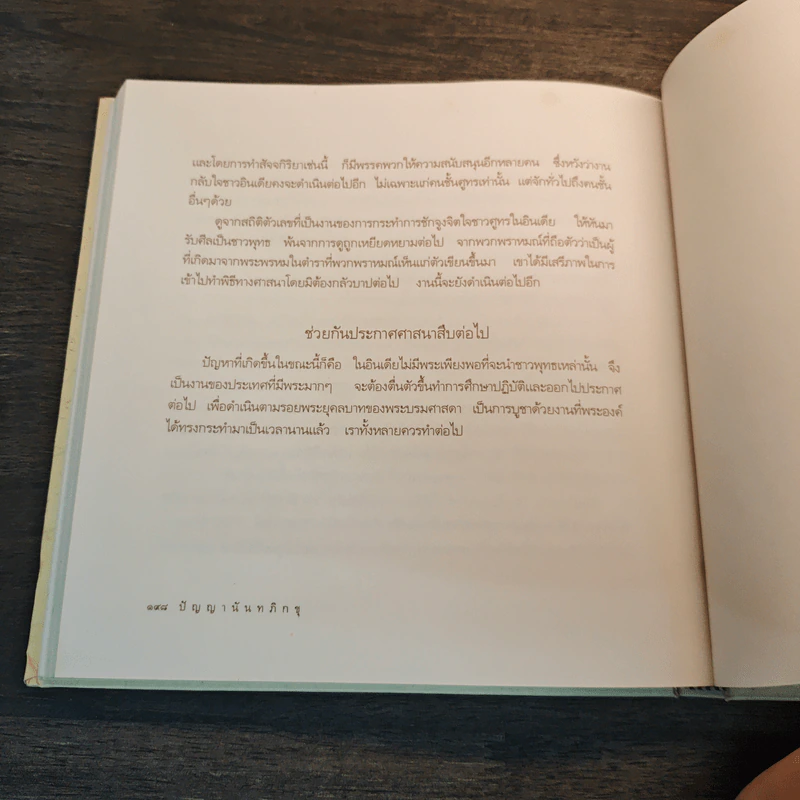 และโดยการทำสัจจกิริยาเช่นนี้ ก็มีพรรคพวกให้ความสนับสนุนอีกหลายคน ซึ่งหวังว่างาน
กลับใจชาวอินเดียคงจะดำเนินต่อไปอีก ไม่เฉพาะแก่คนชั้นศูทรเท่านั้น แต่จักทั่วไปถึงคนชั้น
อื่นๆด้วย
ดูจากสถิติตัวเลขที่เป็นงานของการกระทำการชักจูงจิตใจชาวศูทรในอินเดีย ให้หันมา
รับศีลเป็นชาวพุทธ พ้นจากการดูถูกเหยียดหยามต่อไป จากพวกพราหมณ์ที่ถือตัวว่าเป็นผู้
ที่เกิดมาจากพระพรหมในตำราที่พวกพราหมณ์เห็นแก่ตัวเขียนขึ้นมา เขาได้มีเสรีภาพในการ
เข้าไปทำพิธีทางศาสนาโดยมิต้องกลัวบาปต่อไป งานนี้จะยังดำเนินต่อไปอีก
ช่วยกันประกาศศาสนาสืบต่อไป
ปัญหาที่เกิดขึ้นในขณะนี้ก็คือ ในอินเดียไม่มีพระเพียงพอที่จะนำชาวพุทธเหล่านั้น จึง
เป็นงานของประเทศที่มีพระมากๆ จะต้องตื่นตัวขึ้นทำการศึกษาปฏิบัติและออกไปประกาศ
ต่อไป เพื่อดำเนินตามรอยพระยุคลบาทของพระบรมศาสดา เป็นการบูชาด้วยงานที่พระองค์
ได้ทรงกระทำมาเป็นเวลานานแล้ว เราทั้งหลายควรทำต่อไป
๑๙๘ ปัญญานันทภิกขุ